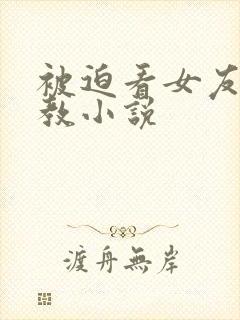 被迫看女友
教小説
渡舟無岸